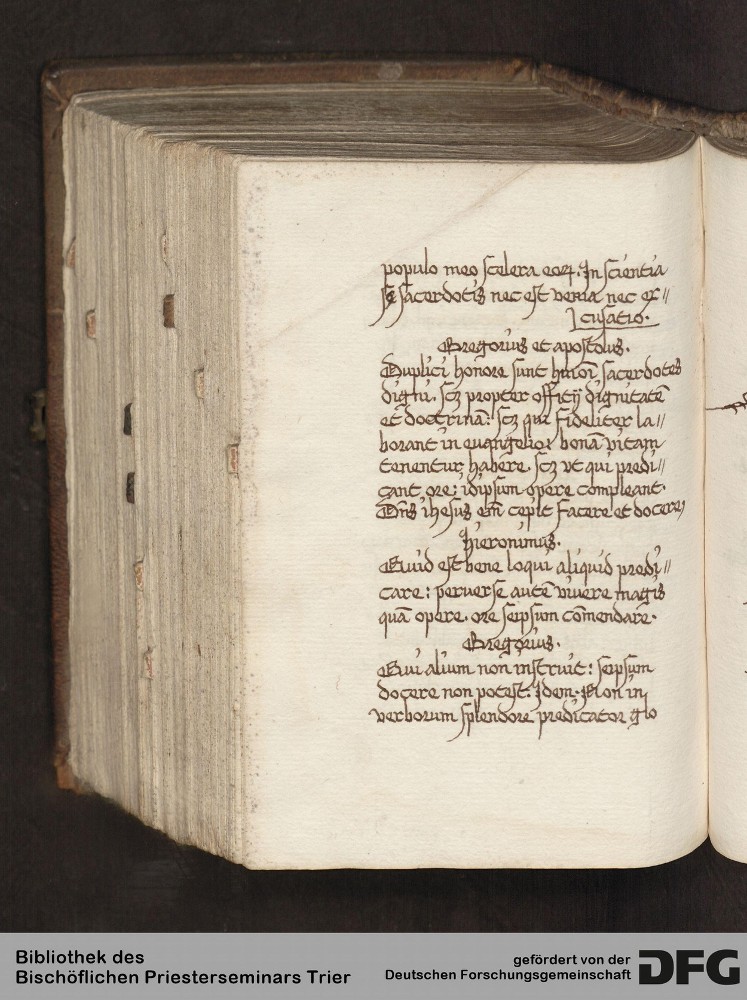 populo meo scelera eoꝝ. In scientia
sacerdotis nec est venia nec ex //
cusatio.
Gregorius et apostolus.
Duplici honore sunt hmōi sacerdotes
digni. scꝫ propter officij dignitatē
et doctrinā: scꝫ qui fideliter la //
borant in euangelio bonā vitam
tenentur habere. scꝫ vt qui predi //
cant ore: idipsum opere compleant.
Dn̄s ihesus em̄ cepit facere et docere
hieronimus.
Quid est bene loqui aliquid predi //
care: peruerse autē viuere magis
quā opere. ore seipsum cōmendare.
Gregorius.
Qui alium non instruit: seipsum
docere non potest. Idem. Non in
verborum splendore predicator glo
Bibliothek des
Bischöflichen Priesterseminars Trier
gefördert von der
Deutschen Forschungsgemeinschaft
DFG